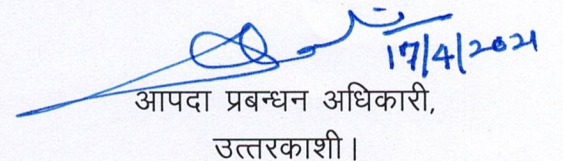 17/4/2021
आपदा प्रबन्धन अधिकारी,
उत्तरकाशी।